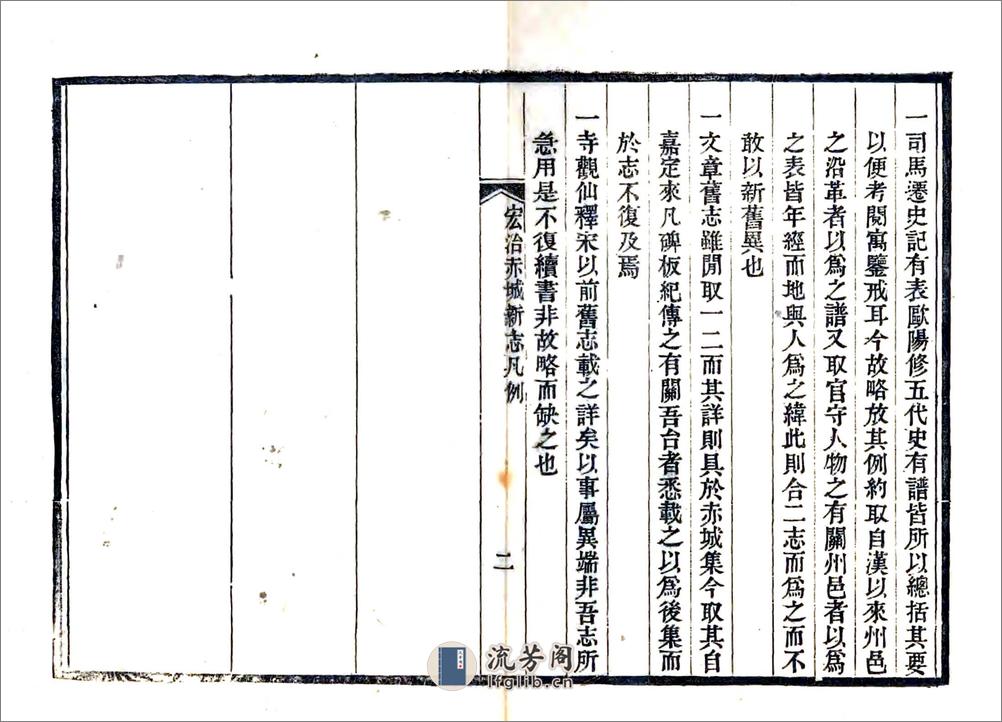 一司馬遷史記有表歐陽修五代史有譜皆所以總括其要
以便考閱寓鑒戒耳今故略放其例約取自漢以來州邑
之沿革者以爲之譜又取官守人物之有關州邑者以爲
之表皆年經而地與人爲之緯此則合二志而爲之而不
敢以新舊異也
一文章舊志雖閒取一二而其詳則具於赤城集今取其自
嘉定來凡碑板紀傳之有關吾台者悉載之以爲後集而
於志不復及焉
一寺觀仙釋宋以前舊志載之詳矣以事屬異端非吾志所
急用是不復續書非故略而缺之也
宏治赤城新志凡例
二
流芳阁
lfglib.cn